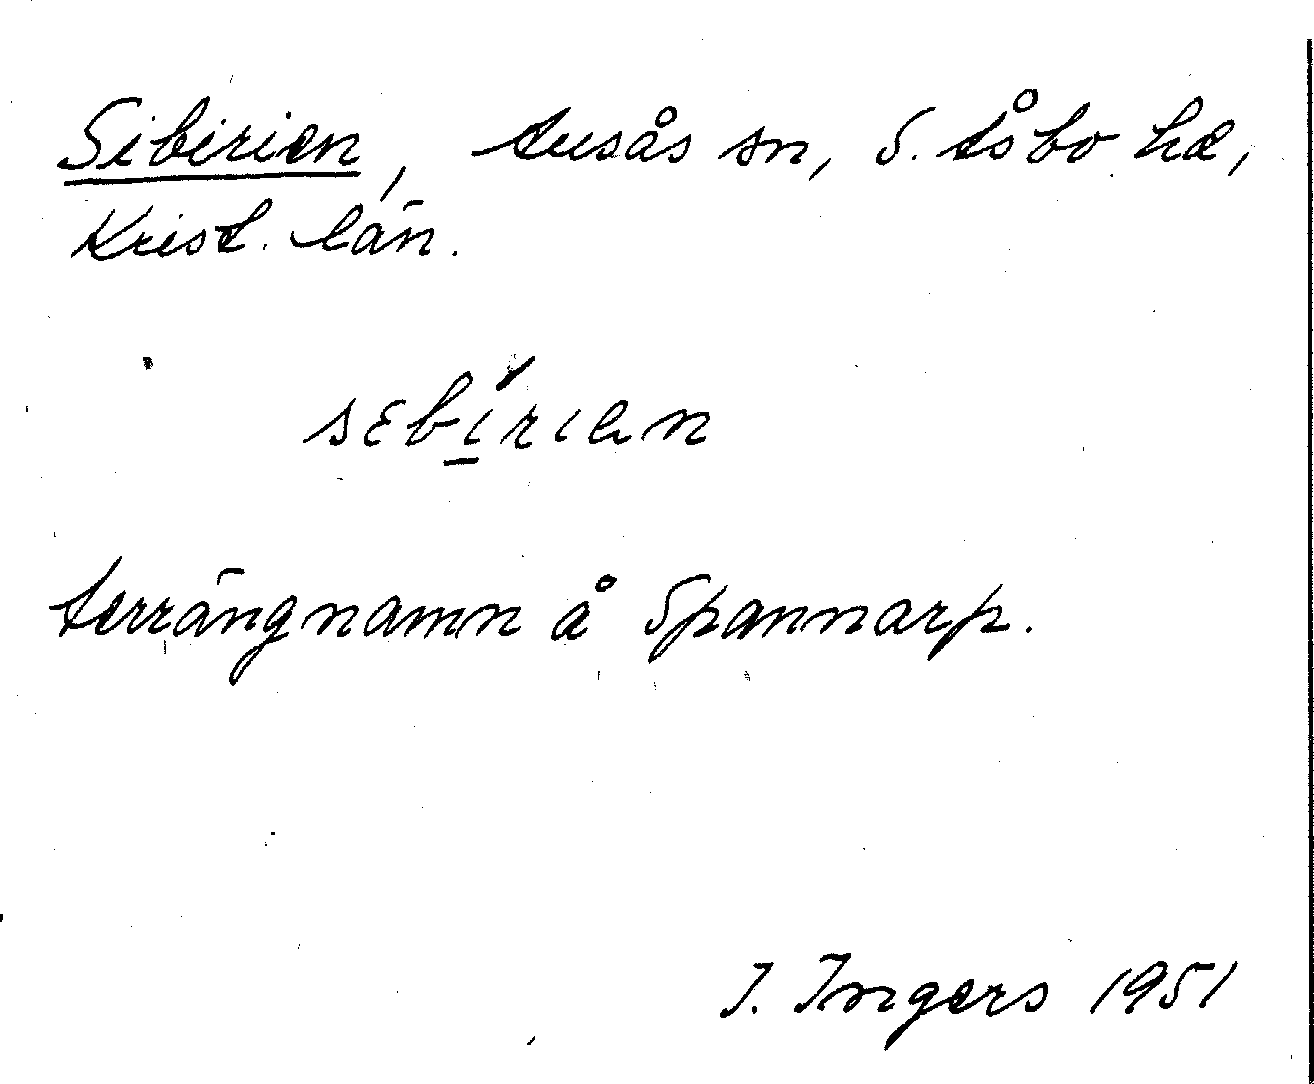 Sibirien, Ausås sn, S. Åsbo hd,
Krist. län.
sɛbírien
terrängnamn å Spannarp.
I. Ingers 1951